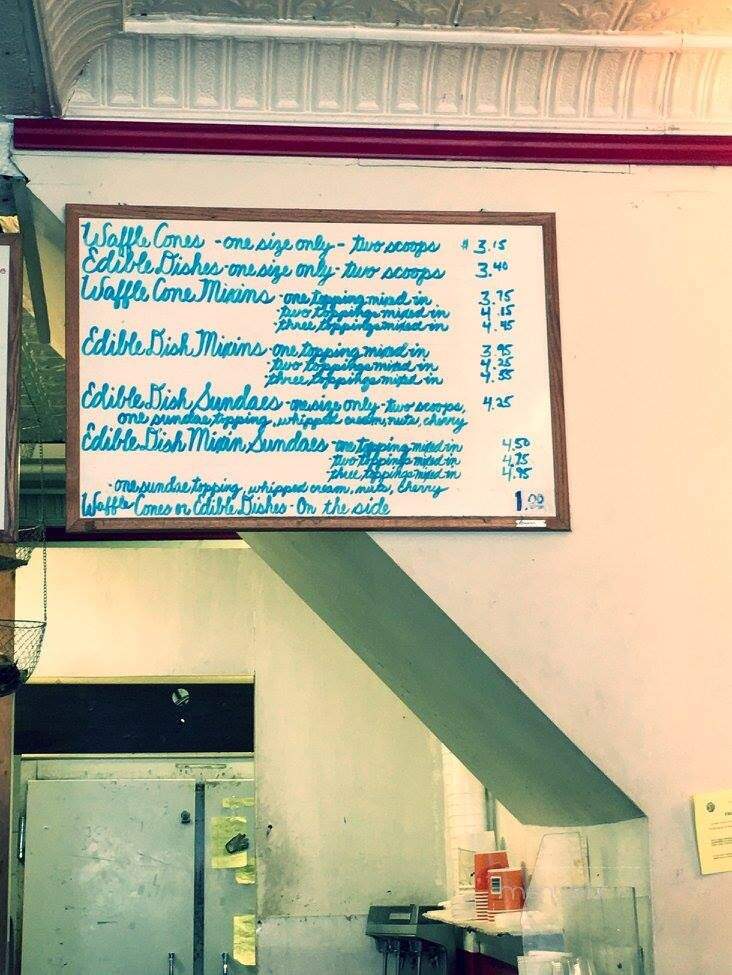 Waffle Cones - one size only - two scoops $ 3.15
Edible Dishes - one size only - two scoops 3.40
Waffle Cone Mixins - one topping mixed in 3.75
two toppings mixed in 4.15
three toppings mixed in 4.45
Edible Dish Mixins - one topping mixed in 3.95
two toppings mixed in 4.25
three toppings mixed in 4.55
Edible Dish Sundaes - one size only - two scoops, 4.25
one sundae topping, whipped cream, nuts, cherry
Edible Dish Mixin Sundaes - one topping mixed in 4.50
two toppings mixed in 4.75
three toppings mixed in 4.95
- one sundae topping, whipped cream, nuts, cherry
Waffle Cones or Edible Dishes - On the side 1.00